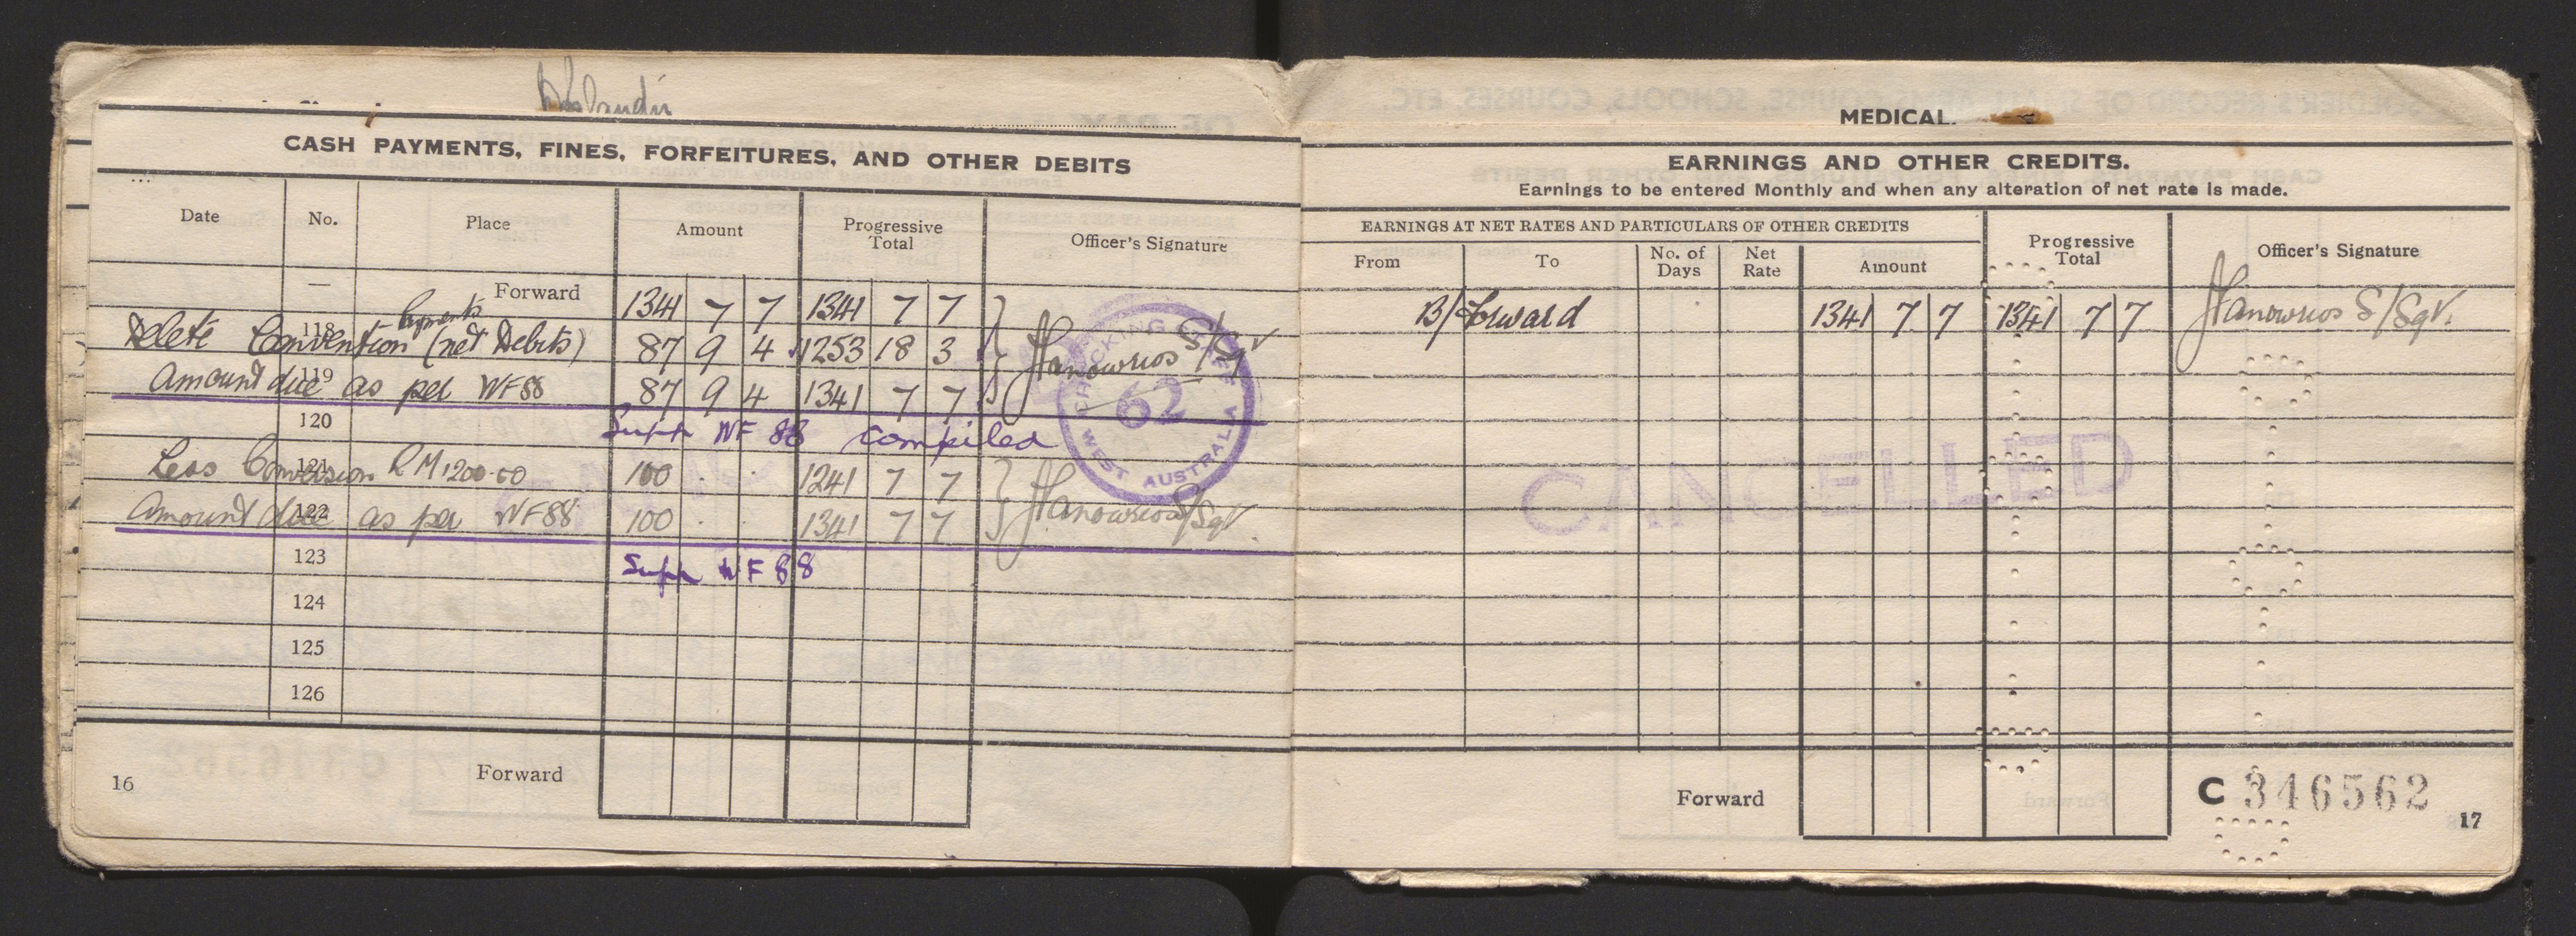 CASH PAYMENTS, FINES, FORFEITURES, AND OTHER DEBITS
Date No. Place Amount Progressive Total Officer's Signature
— Forward 1341 7 7 1341 7 7
118 Delete Convention Payments (net Debits) 87 9 4 1253 18 3 S/Sgt
119 Amount due as per WF88 87 9 4 1341 7 7
120 Supp WF 88 compiled
121 Less Conversion RM1200.00 100 . . 1241 7 7
122 Amount due as per WF88 100 . . 1341 7 7 S/Sgt
123 Supp WF 88
124
125
126
Forward
16
62
WEST AUSTRALIA
MEDICAL.
EARNINGS AND OTHER CREDITS.
Earnings to be entered Monthly and when any alteration of net rate is made.
EARNINGS AT NET RATES AND PARTICULARS OF OTHER CREDITS
From To No. of Days Net Rate Amount Progressive Total Officer's Signature
B/Forward 1341 7 7 1341 7 7 S/Sgt.
CANCELLED
Forward
C 346562
17